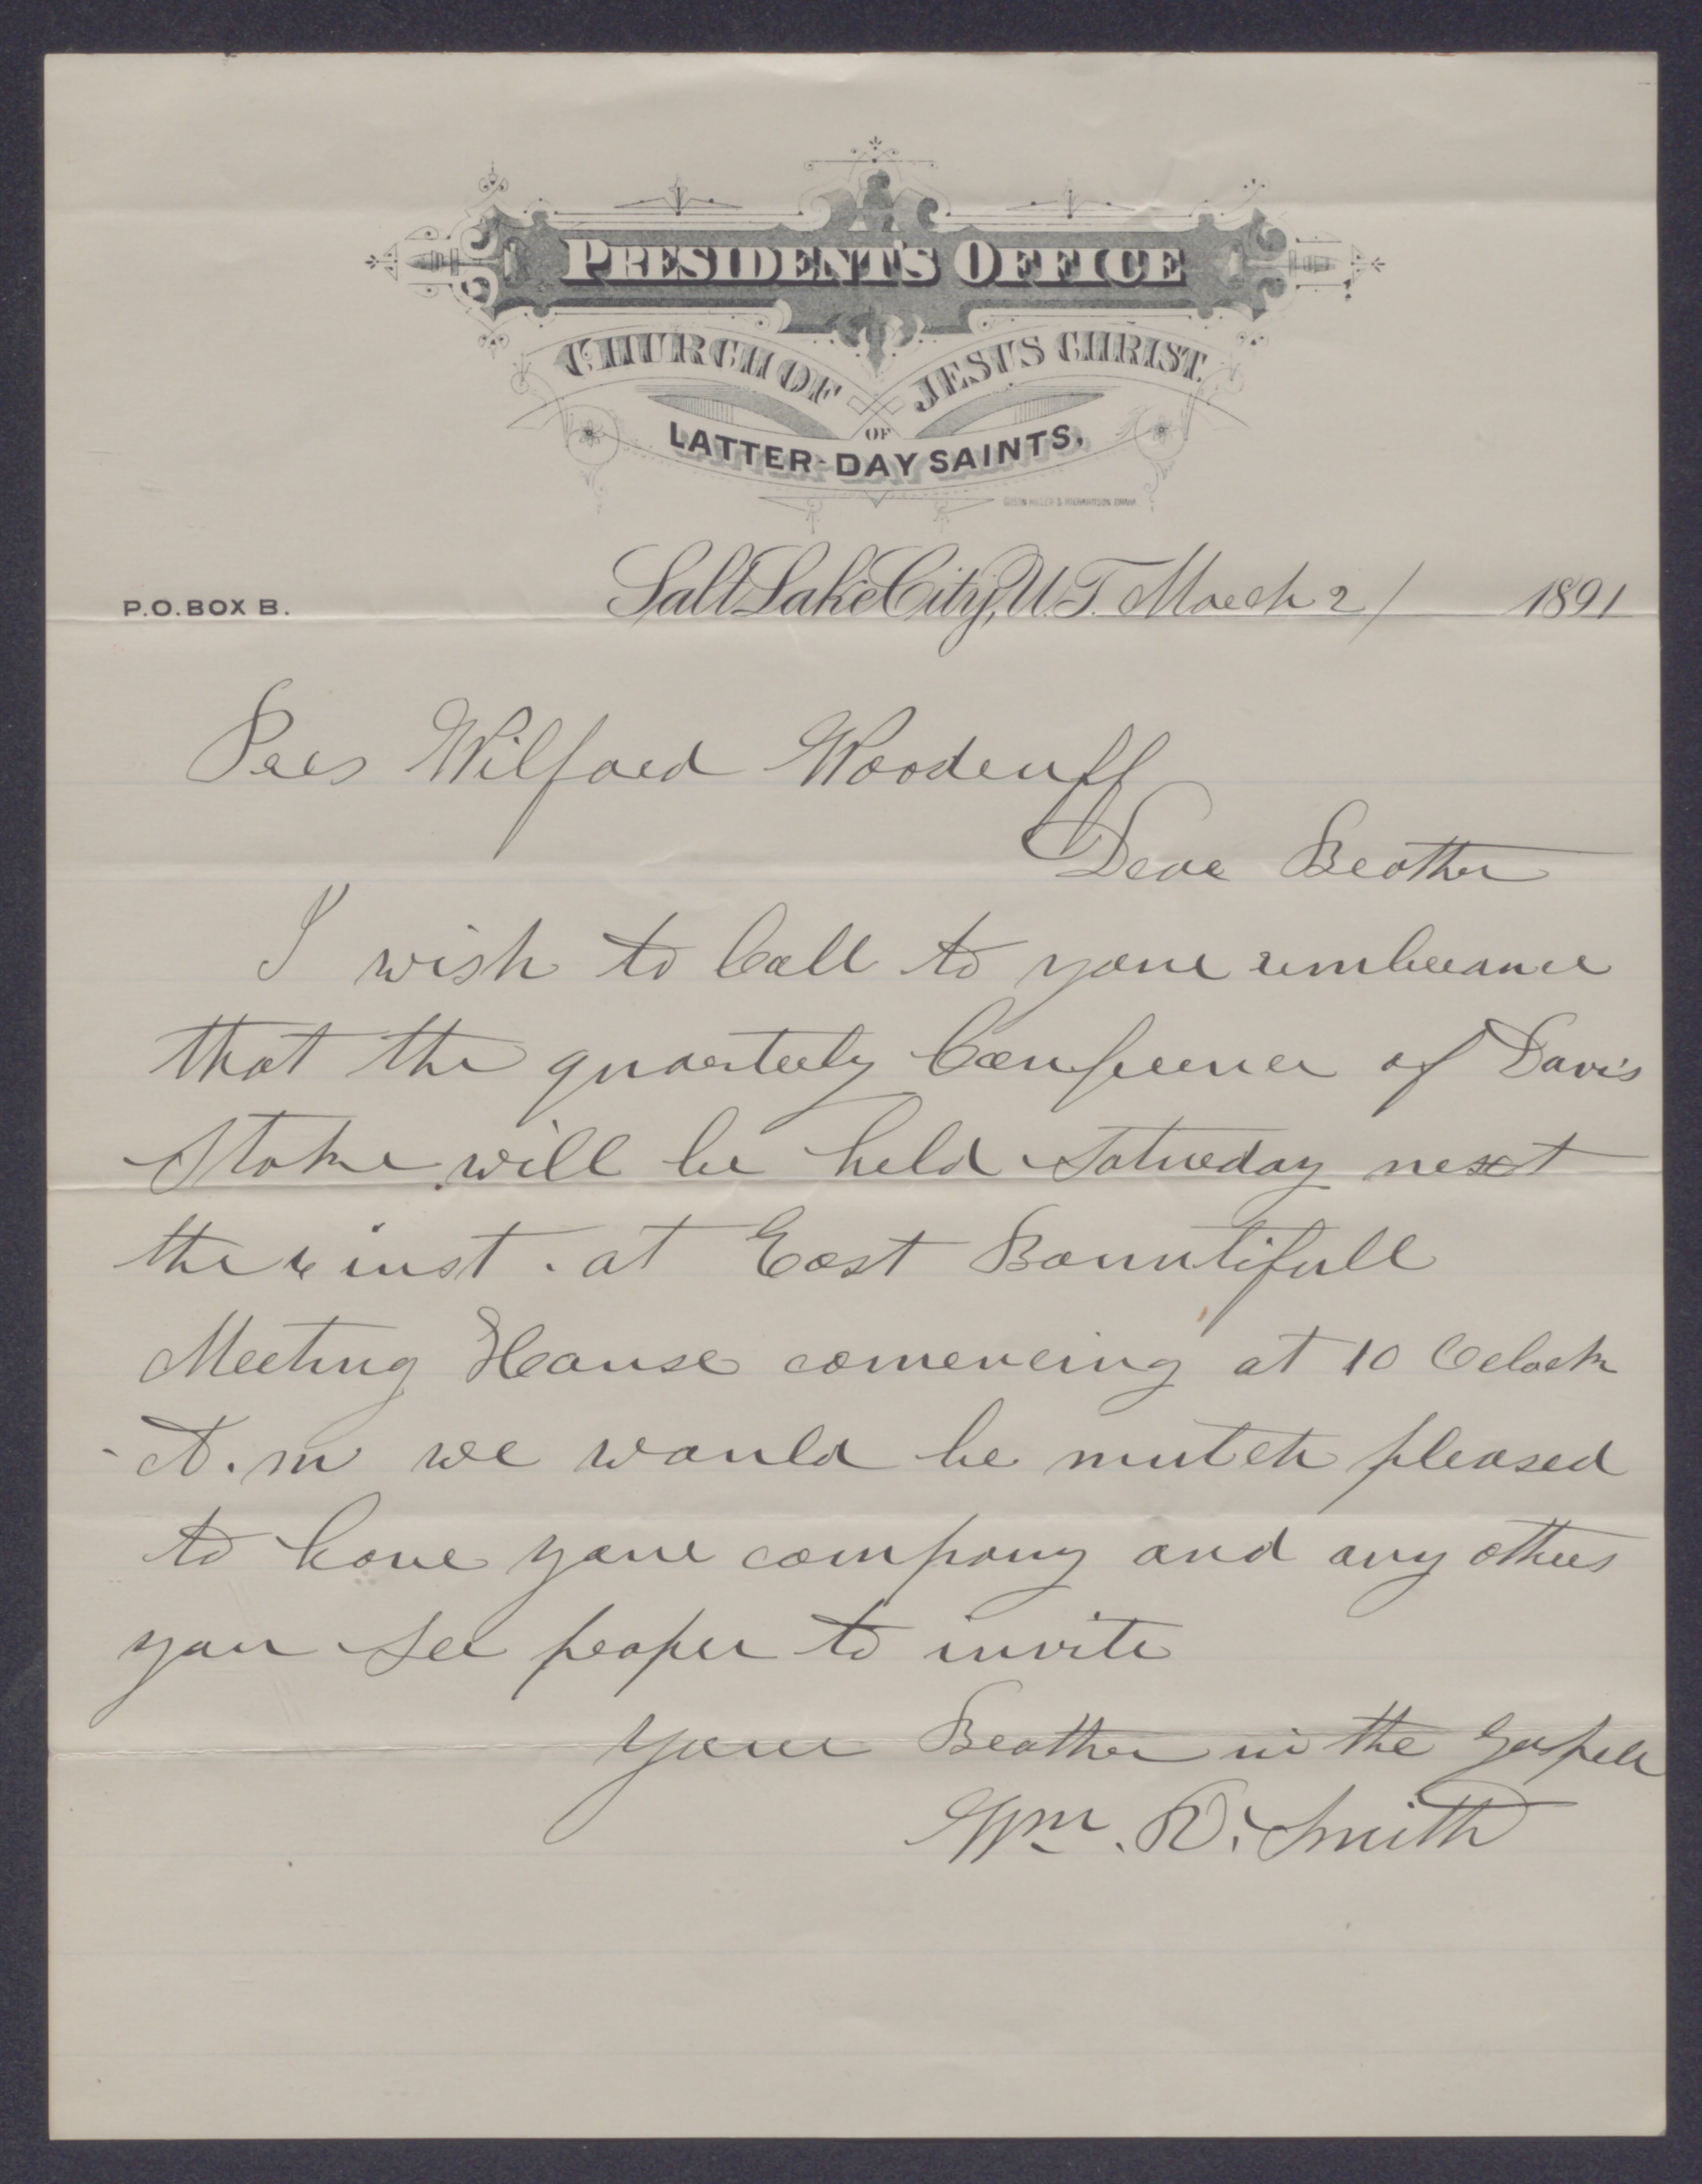 PRESIDENT'S OFFICE
CHURCH OF JESUS CHRIST
OF
LATTER-DAY SAINTS,
P.O. BOX B.
Salt Lake City, U.T. March 2/ 1891
Pres Wilford Woodruff
Dear Brother
I wish to Call to your rembrance
that the quarterly Conference of Davis
Stake will be held Saturday next
the inst. at East Bountifull
Meeting House comencing at 10 Oclock
A.m we would be mutch pleased
to have your company and any others
you see proper to invite
your Brother in the Gospel
Wm. R. Smith